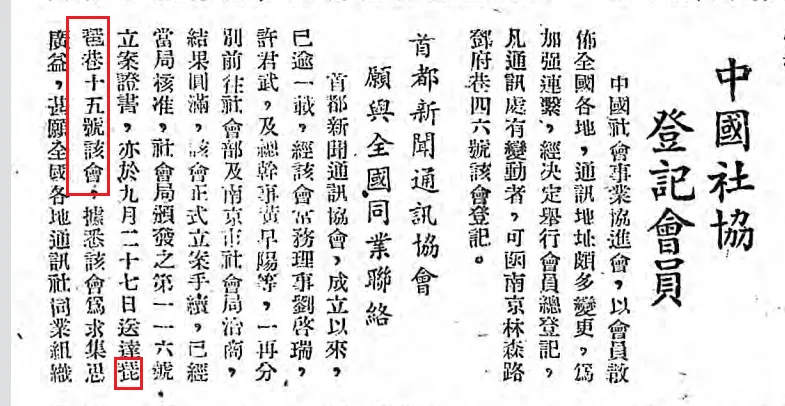 中國社協
登記會員
中國社會事業協進會，以會員散
佈全國各地，通訊地址頗多變更，爲
加强連繫，經決定舉行會員總登記，
凡通訊處有變動者，可函南京林森路
鄧府巷四六號該會登記。
首都新聞通訊協會
願與全國同業聯絡
首都新聞通訊協會，成立以來，
已逾一載，經該會常務理事劉啓瑞，
許君武，及總幹事黃早陽等，一再分
別前往社會部及南京市社會局洽商，
結果圓滿，該會正式立案手續，已經
當局核准，社會局頒發之第一一六號
立案證書，亦於九月二十七日送達琵
琶巷十五號該會，據悉該會爲求集思
廣益，甚願全國各地通訊社同業組織